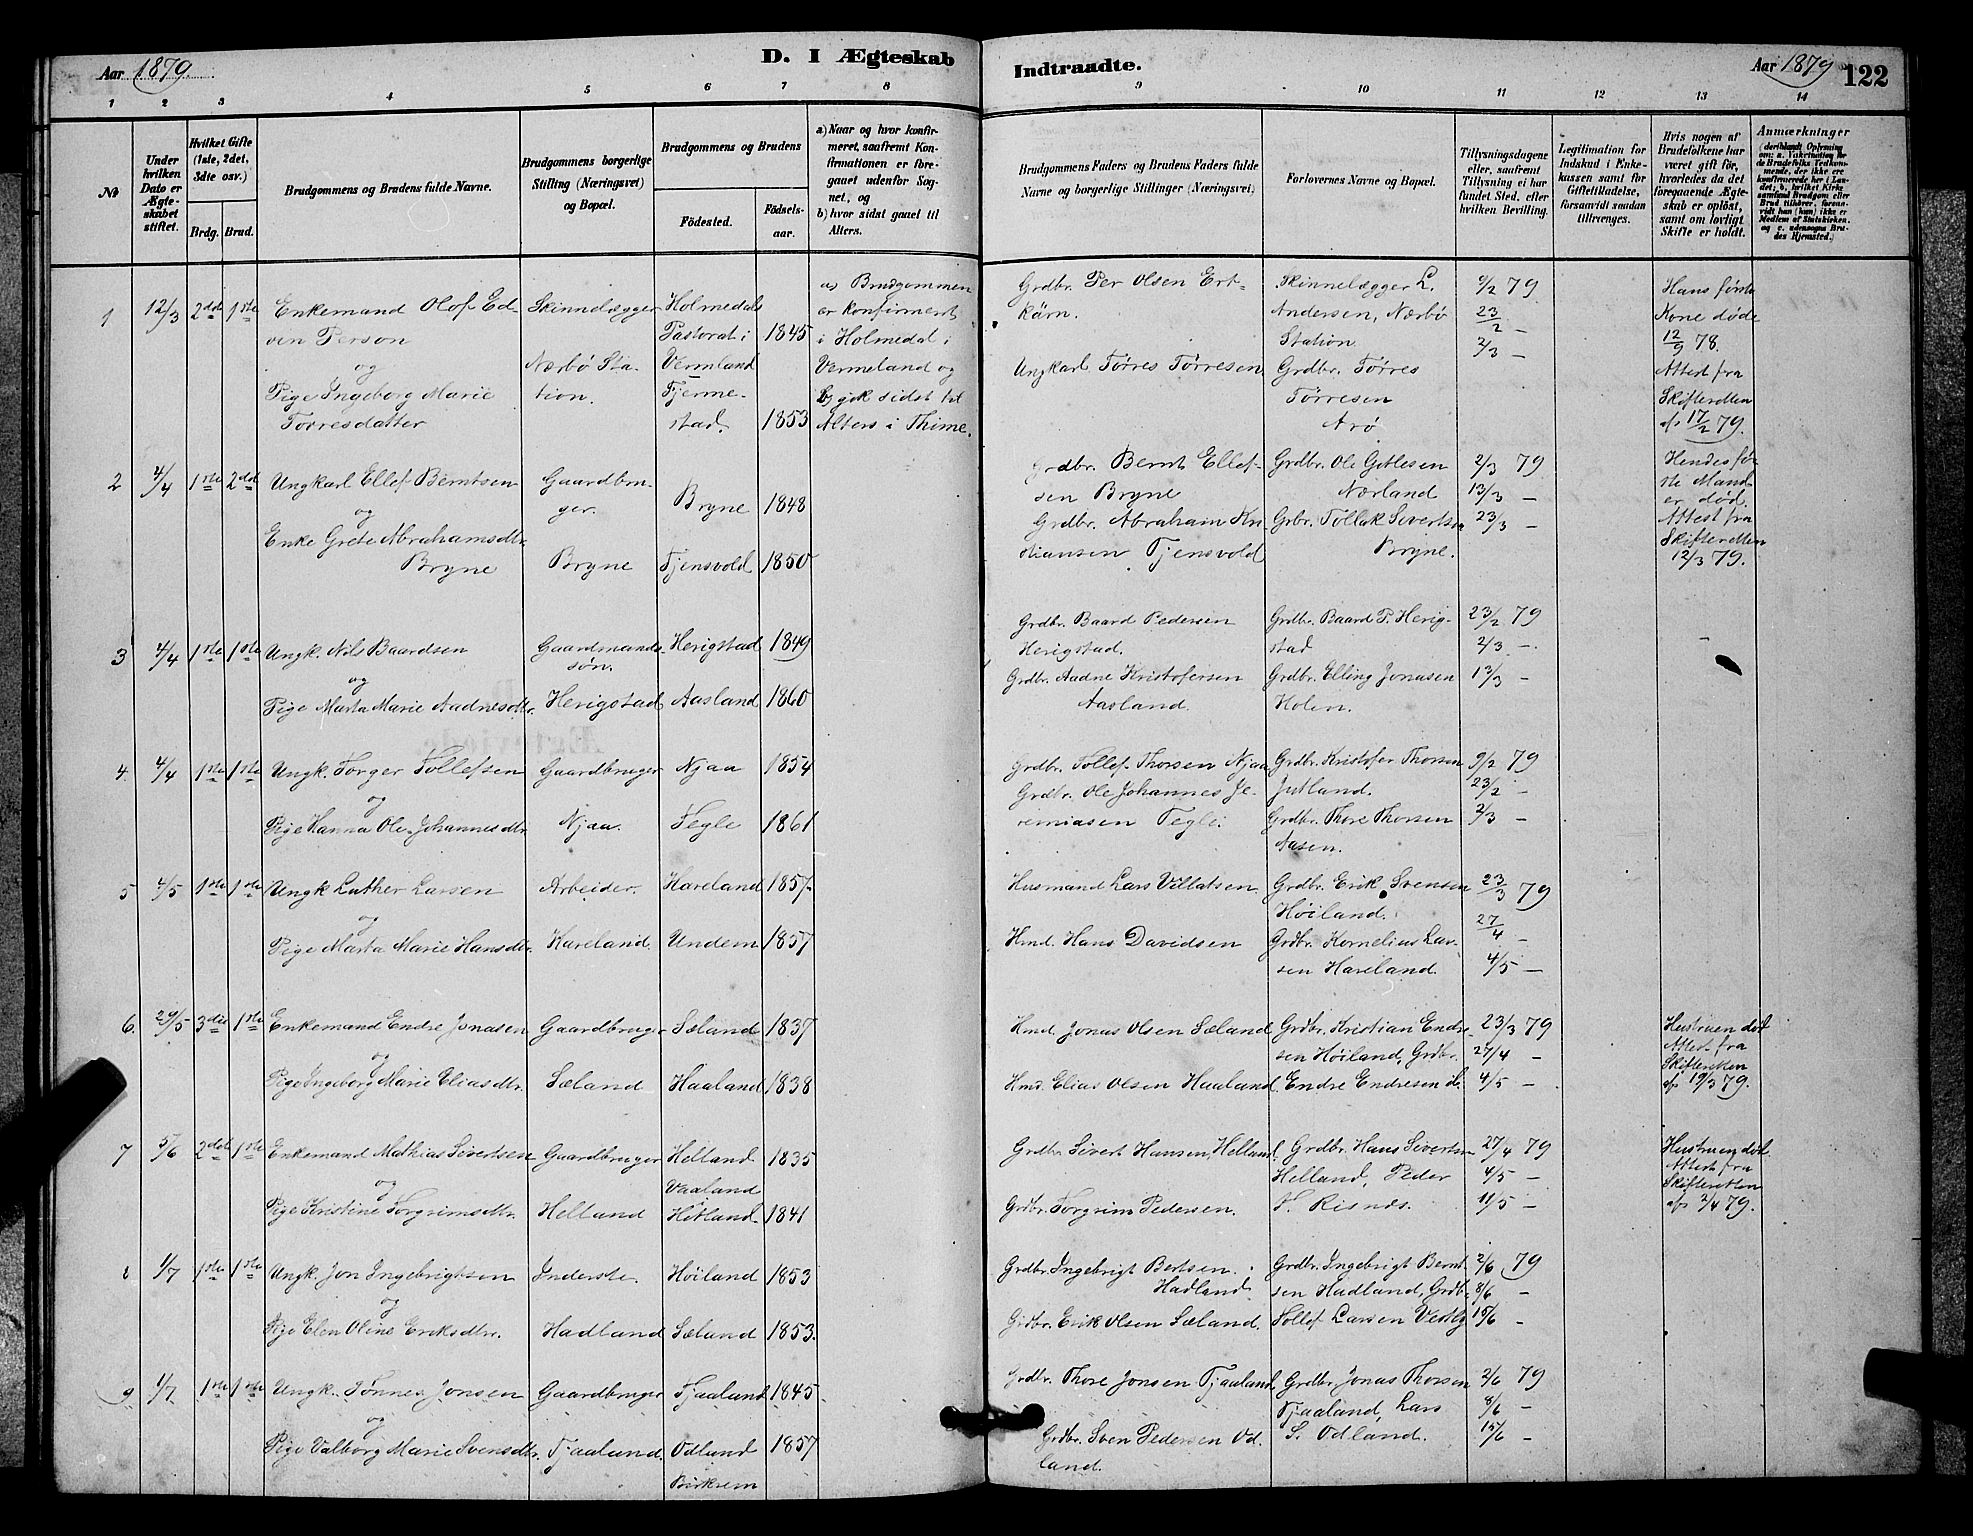 Aar 1879.
D. I Ægteskab
Indtraadte.
Aar 1879
122
1 2 3 4 5 6 7 8
9 10 11 12 13 14
No
Under hvilken Dato er Ægteskabet stiftet.
Hvilket Gifte (1ste, 2det, 3die osv.)
Brdg. Brud.
Brudgommens og Brudens fulde Navne.
Brudgommens borgerlige Stilling (Næringsvei) og Bopæl.
Brudgommens og Brudens
Fødested.
Fødsels-aar.
a) Naar og hvor konfirmeret, saafremt Konfirmationen er foregaaet udenfor Sognet, og
b) hvor sidst gaaet til Alters.
Brudgommens Faders og Brudens Faders fulde Navne og borgerlige Stillinger (Næringsvei).
Forlovernes Navne og Bopæl.
Tillysningsdagene eller, saafremt Tillysning ei har fundet Sted, efter hvilken Bevilling.
Legitimation for Indskud i Enkekassen samt for Giftetilladelse, forsaavidt saadan tiltrænges.
Hvis nogen af Brudefolkene har været gift før, hvorledes da det foregaaende Ægteskab er opløst, samt om lovligt Skifte er holdt.
Anmærkninger
1 12/3 2det 1ste
Enkemand Olof Ed-
ven Person
og
Pige Ingeborg Marie
Torresdatter
Skinnelægger
Nærbø Sta-
tion.
Holmedals
Pastorat i
Vermland
Tjerme-
stad.
1845
1853
a) Brudgommen
er konfirmeret
i Holmedal i
Vermeland og
b) gik sidst til
Alters i Thime.
Grdbr. Per Olsen Ert-
kärn.
Ungkarl Tørres Tørresen
Skinnelægger L.
Andersen, Nærbø
Station
Grdbr. Tørres
Tørresen
Arø
9/2 79
23/2 –
2/3 –
Hans første
Kone døde
12/9 78.
Attest fra
Skifteretten
af 17/2 79.
2 4/4 1ste 2det
Ungkarl Ellef Berntsen
og
Enke Grete Abrahamsdtr.
Bryne
Gaardbru-
ger.
Bryne
Bryne 1848
Tjensvold 1850
Grdbr. Bernt Ellef-
sen Bryne
Grdbr. Abraham Kri-
stiansen Tjensvold
Grdbr. Ole Gitlesen
Nærland
Grbr. Tollak Sivertsen
Bryne.
2/3 79
13/3 –
23/3 –
Hendes før-
ste Mand
er død.
Attest fra
Skifteretten
12/3 79.
3 4/4 1ste 1ste
Ungk. Nils Baardsen
og
Pige Marta Marie Aadnesdtr.
Gaardmands-
søn.
Herigstad
Herigstad 1849
Aasland 1860
Grdbr. Baard Pedersen
Herigstad.
Grdbr. Aadne Kristofersen
Aasland.
Grdbr. Baard P. Herig-
stad
Grdbr. Elling Jonasen
Holen.
23/2 79
2/3 –
13/3 –
–
4 4/4 1ste 1ste
Ungk. Torger Tollefsen
og
Pige Hanna Ole-Johannesdtr.
Gaardbruger
Njaa.
Njaa 1854
Tegle 1861
Grdbr. Tollef Thorsen Njaa
Grdbr. Ole Johannes Je-
remiasen Tegle.
Grdbr. Kristofer Thorsen
Jutland.
Grdbr. Thore Thorsen
Aasen.
9/2 79
23/2 –
2/3 –
5 4/5 1ste 1ste
Ungk Luther Larsen
og
Pige Marta Marie Hansdtr.
Arbeider.
Hareland.
Hareland 1857.
Undem 1857
Husmand Lars Villatsen.
Hmd. Hans Davidsen
Grdbr. Erik Svensen
Høiland.
Grdbr. Kornelius Lar-
sen Hareland.
23/3 79
27/4 –
4/5 –
6. 29/5 3die 1ste
Enkemand Endre Jonasen
og
Pige Ingeborg Marie Eliasdtr.
Gaardbruger
Sæland
Sæland 1837
Haaland 1838
Hmd. Jonas Olsen Sæland
Hmd. Elias Olsen Haaland.
Grdbr. Kristian Endre-
sen Høiland, Grdbr.
Endre Endresen ib.
23/3 79
27/4 –
4/5 –
Hustruen død
Attest fra
Skifteretten
af 19/3 79.
7 5/6 2det 1ste
Enkemand Mathias Sivertsen
og
Pige Kristine Torgrimsdtr.
Gaardbruger
Helland
Helland 1835
Vaaland
Hetland 1841
Grdbr Sivert Hansen, Helland.
Grdbr. Torgrim Pedersen.
Grdbr. Hans Sivertsen
Helland, Peder
T. Risnes.
27/4 79
4/5 –
11/5 –
Hustruen død.
Attest fra
Skifteretten
af 2/4 79.
8 1/7 1ste 1ste
Ungk. Jon Ingebrigtsen
og
Pige Elen Oline Eriksdtr.
Inderste.
Hadland
Høiland 1853
Sæland 1853.
Grdbr. Ingebrigt Bertsen.
Hadland
Grdbr. Erik Olsen Sæland.
Grdbr. Ingebrigt Bernt-
sen Hadland, Grdb.
Tollef Larsen Vestly
2/6 79
8/6 –
15/6 –
9 1/7 1ste 1ste
Ungk. Tønnes Jonsen
og
Pige Valborg Marie Svensdtr.
Gaardbruger
Tjaaland.
Tjaaland 1845.
Odland 1857
Birkrem
Grdbr. Thore Jonsen Tjaaland.
Grdbr. Sven Pedersen Od-
land.
Grdbr. Jonas Thorsen
Tjaaland, Lars
S. Odland.
2/6 79
8/6 –
15/6 –